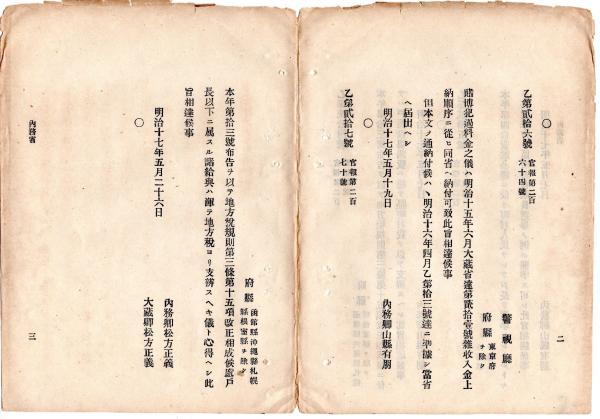 二
〇
乙第貳拾六號 官報第二百
六十四號
警視廳
府縣 東京府
ヲ除ク
賭博犯過料金之儀ハ明治十五年六月大藏省達第貳拾壹號雜收入金上
納順序ニ從ヒ同省ヘ納付可致此旨相達候事
但本文ノ通納付候ハヽ明治十六年四月乙第拾三號達ニ準據シ當省
ヘ屆出ヘシ
明治十七年五月十九日
內務卿山縣有朋
〇
乙第貳拾七號 官報第二百
七十號
府縣 函館縣沖繩縣札幌
縣根室縣ヲ除ク
本年第拾三號布告ヲ以テ地方稅規則第三條第十五項改正相成候處戶
長以下ニ屬スル諸給與ハ渾テ地方稅ヨリ支辨スヘキ儀ト心得ヘシ此
旨相達候事
明治十七年五月二十六日
內務卿松方正義
大藏卿松方正義
〇
內務省
三